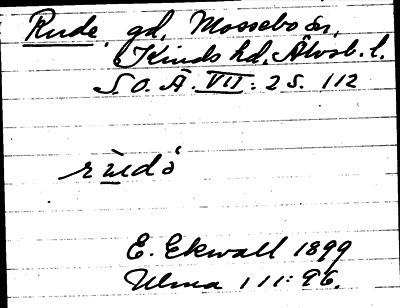 Rude, gd, Mossebo sn,
Kinds hd, Älvsb. l.
S.O.Ä. VII: 2 s. 112
E. Ekwall 1899
Ulma 111: 96.